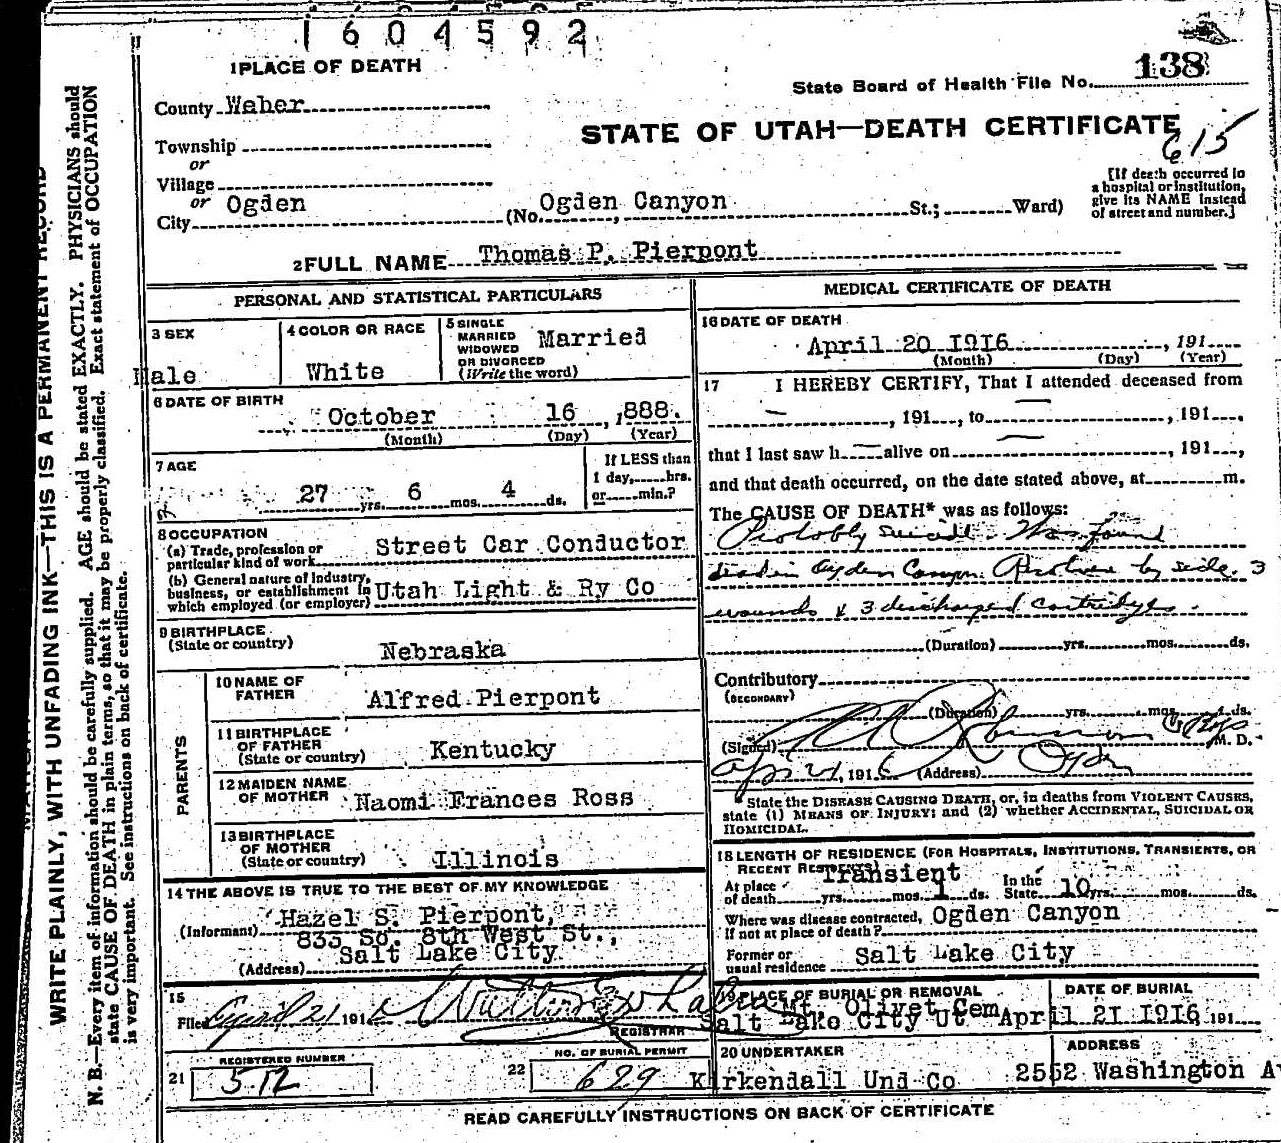 1604592
1 PLACE OF DEATH
State Board of Health File No. 138
County Weber
STATE OF UTAH—DEATH CERTIFICATE
615
Township
or
Village
or
City Ogden (No. Ogden Canyon St.; Ward)
[If death occurred in
a hospital or institution,
give its NAME instead
of street and number.]
2 FULL NAME Thomas P. Pierpont
PERSONAL AND STATISTICAL PARTICULARS
3 SEX
Male
4 COLOR OR RACE
White
5 SINGLE
MARRIED
WIDOWED
OR DIVORCED
(Write the word)
Married
6 DATE OF BIRTH
October 16, 1888.
(Month) (Day) (Year)
7 AGE
27 yrs. 6 mos. 4 ds.
If LESS than
1 day, hrs.
or min.?
8 OCCUPATION
(a) Trade, profession or
particular kind of work Street Car Conductor
(b) General nature of Industry,
business, or establishment in
which employed (or employer) Utah Light & Ry Co
9 BIRTHPLACE
(State or country) Nebraska
PARENTS
10 NAME OF
FATHER Alfred Pierpont
11 BIRTHPLACE
OF FATHER
(State or country) Kentucky
12 MAIDEN NAME
OF MOTHER Naomi Frances Ross
13 BIRTHPLACE
OF MOTHER
(State or country) Illinois
14 THE ABOVE IS TRUE TO THE BEST OF MY KNOWLEDGE
(Informant) Hazel S. Pierpont,
833 So. 8th West St.,
(Address) Salt Lake City
15
Filed April 21 1916
REGISTRAR
REGISTERED NUMBER
21 512
NO. OF BURIAL PERMIT
22 629
MEDICAL CERTIFICATE OF DEATH
16 DATE OF DEATH
April 20 1916, 191
(Month) (Day) (Year)
17 I HEREBY CERTIFY, That I attended deceased from
, 191 , to , 191 ,
that I last saw h alive on , 191 ,
and that death occurred, on the date stated above, at m.
The CAUSE OF DEATH* was as follows:
Probably suicide. Was found
dead in Ogden Canyon. Revolver by side. 3
wounds & 3 discharged cartridges.
(Duration) yrs. mos. ds.
Contributory
(SECONDARY)
(Duration) yrs. mos. ds.
(Signed) M. D.
Apr 21, 1916 (Address) Ogden
*State the DISEASE CAUSING DEATH, or, in deaths from VIOLENT CAUSES,
state (1) MEANS OF INJURY; and (2) whether ACCIDENTAL, SUICIDAL OR
HOMICIDAL.
18 LENGTH OF RESIDENCE (FOR HOSPITALS, INSTITUTIONS, TRANSIENTS, OR
RECENT RESIDENTS) Transient
At place
of death yrs. mos. 1 ds.
In the
State 10 yrs. mos. ds.
Where was disease contracted,
If not at place of death? Ogden Canyon
Former or
usual residence Salt Lake City
19 PLACE OF BURIAL OR REMOVAL
Mt. Olivet Cem
Salt Lake City Ut
DATE OF BURIAL
April 21 1916, 191
20 UNDERTAKER
Kirkendall Und Co
ADDRESS
2552 Washington Av
READ CAREFULLY INSTRUCTIONS ON BACK OF CERTIFICATE
WRITE PLAINLY, WITH UNFADING INK—THIS IS A PERMANENT RECORD
N. B.—Every item of information should be carefully supplied. AGE should be stated EXACTLY. PHYSICIANS should
state CAUSE OF DEATH in plain terms, so that it may be properly classified. Exact statement of OCCUPATION
is very important. See instructions on back of certificate.